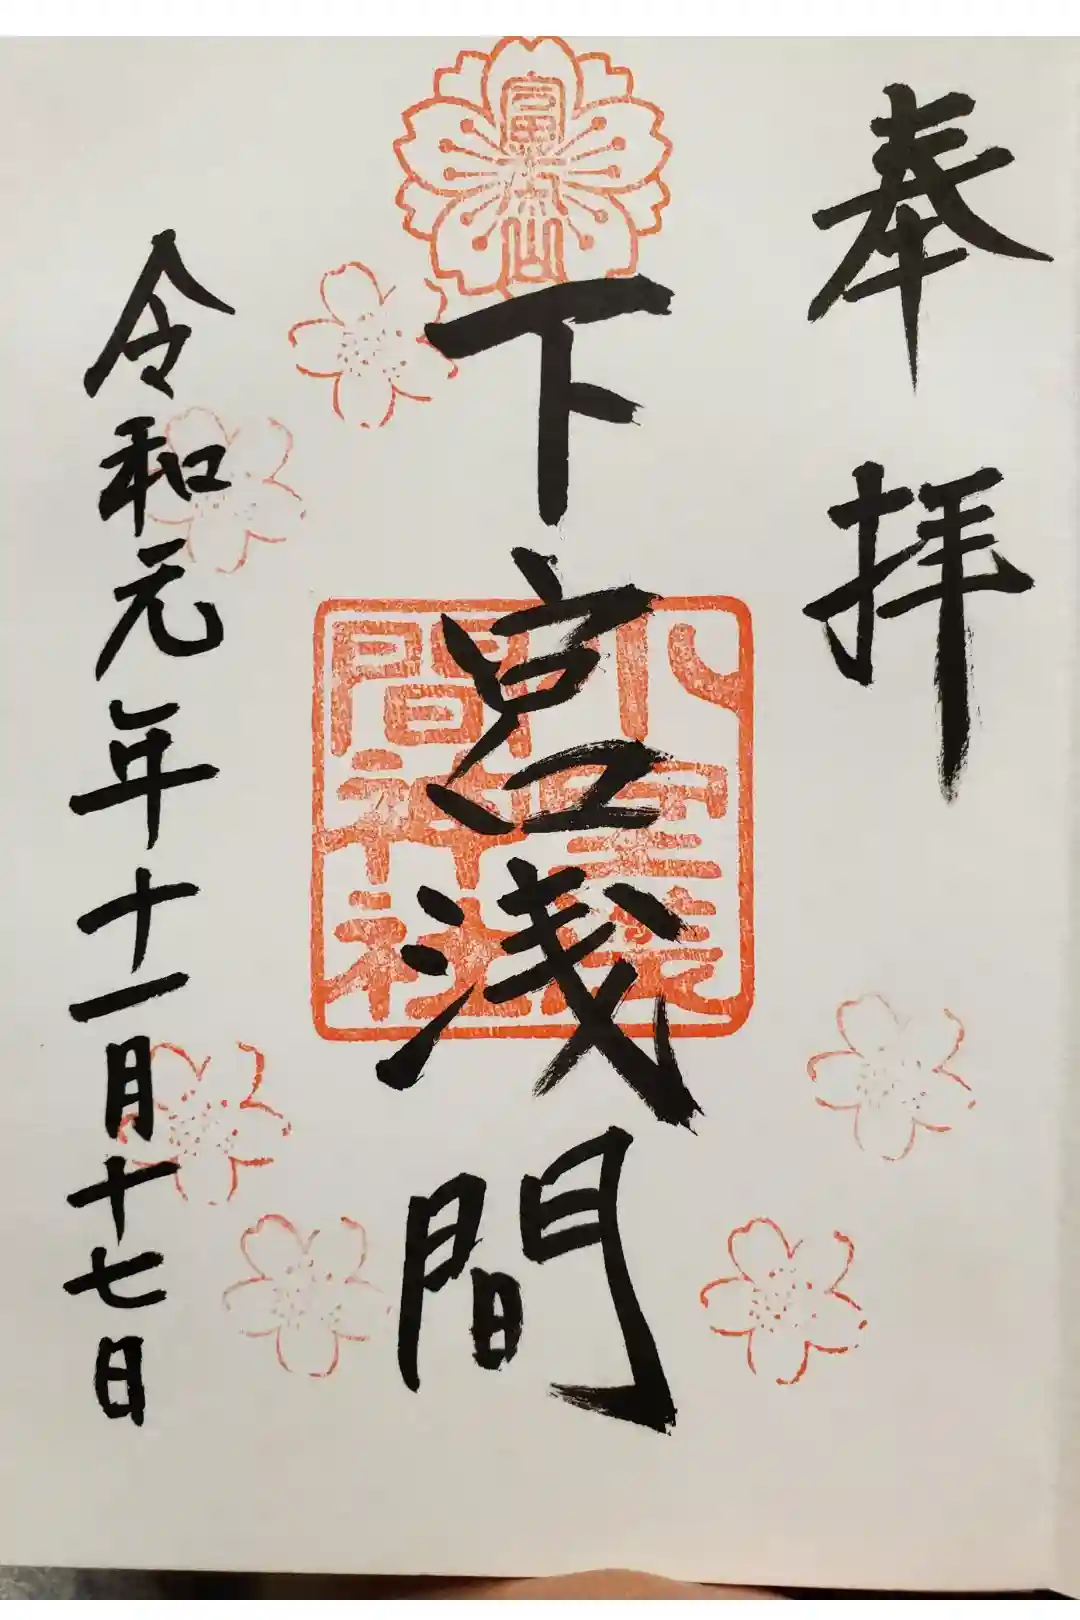 奉拝
富士山
下宮浅間
小室浅
間神社
令和元年十一月十七日